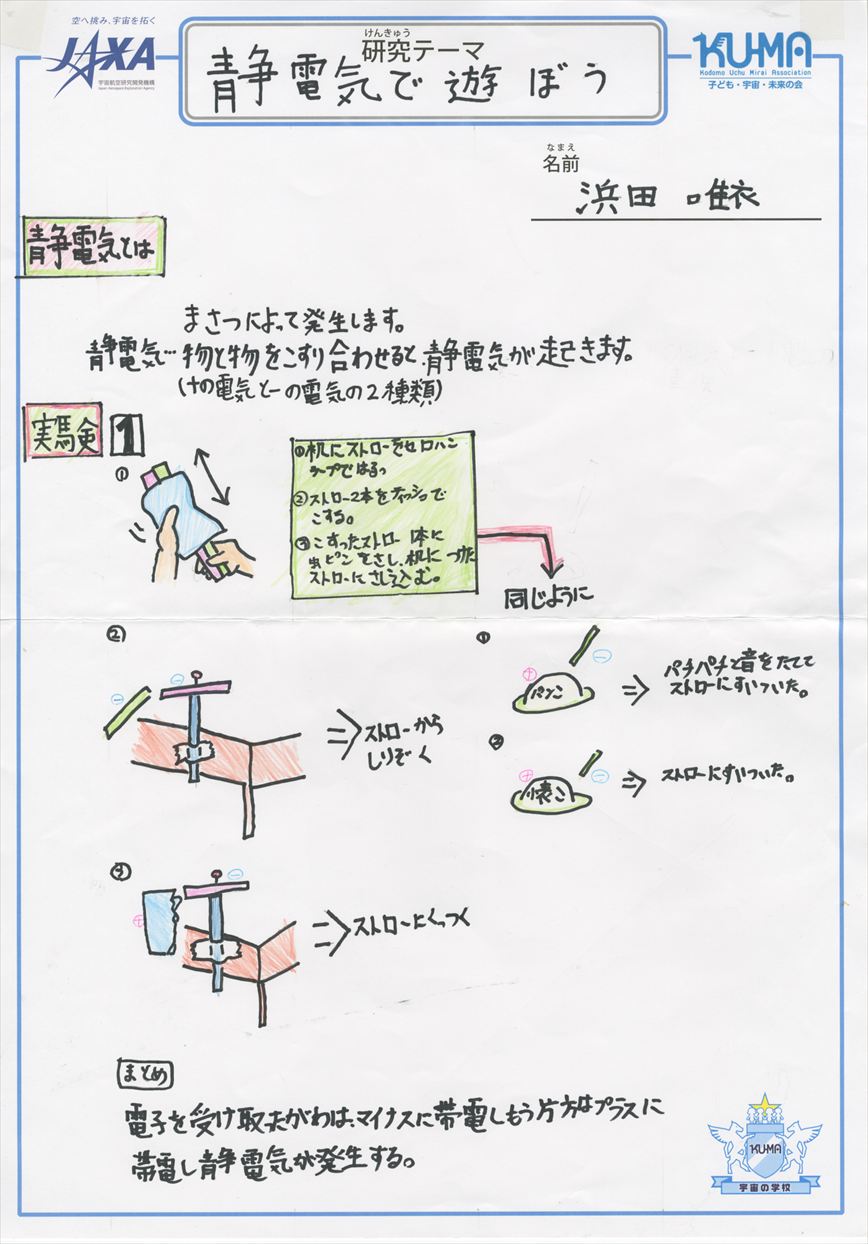 空へ挑み、宇宙を拓く
JAXA
宇宙航空研究開発機構
Japan Aerospace Exploration Agency
けんきゅう
研究テーマ
静電気で遊ぼう
KU-MA
Kodomo Uchu Mirai Association
子ども・宇宙・未来の会
なまえ
名前
浜田 唯衣
静電気とは
まさつによって発生します。
静電気… 物と物をこすり合わせると、静電気が起きます。
(+の電気と-の電気の2種類)
実験 1
①
①机にストローをセロハン
テープではるっ
②ストロー2本をティッシュで
こする。
③こすったストロー1本に
虫ピンをさし、机につけた
ストローにさしこむ。
同じように
②
⇒ストローから
しりぞく
①
パンこ
⇒ パチパチと音をたてて
ストローにすいついた。
②
⇒ ストローにすいついた。
③
⇒ストローにくっつく
まとめ
電子を受け取たがわは、マイナスに帯電しもう片方はプラスに
帯電し静電気が発生する。
KU-MA
宇宙の学校